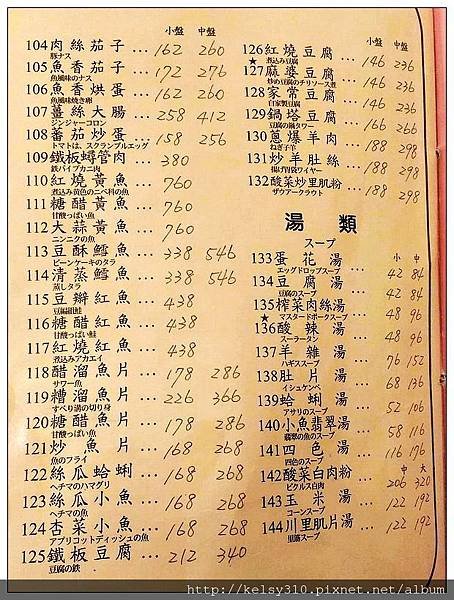 小盤 中盤
104 肉絲茄子 ... 162 260
豚ナス
105 魚香茄子 ... 172 276
魚風味のナス
106 魚香烘蛋 ... 162 260
魚風味焼き卵
107 薑絲大腸 ... 258 412
ジンジャーコロン
108 蕃茄炒蛋 ... 158 256
トマトは、スクランブルエッグ
109 鐵板蟳管肉 ... 380
鉄パイプカニ肉
110 紅燒黃魚 ... 760
煮込み黄色のニベ科の魚
111 糖醋黃魚 ... 760
甘酸っぱい魚
112 大蒜黃魚 ... 760
ニンニクの魚
113 豆酥鱈魚 ... 338 546
ビーンケーキのタラ
114 清蒸鱈魚 ... 338 546
蒸しタラ
115 豆瓣紅魚 ... 438
116 糖醋紅魚 ... 438
甘酸っぱい鮭
117 紅燒紅魚 ... 438
煮込みアカエイ
118 醋溜魚片 ... 178 286
サワー魚
119 糟溜魚片 ... 226 366
すべり溝の切り身
120 糖醋魚片 ... 178 286
甘酸っぱい魚
121 炒魚片 ... 168 268
魚のフライ
122 絲瓜蛤蜊 ... 168 268
ヘチマのハマグリ
123 絲瓜小魚 ... 168 268
ヘチマの魚
124 杏菜小魚 ... 168 268
アプリコットディッシュの魚
125 鐵板豆腐 ... 212 340
豆腐の鉄
小盤 中盤
126 紅燒豆腐 ... 146 236
★ 煮込み豆腐
127 麻婆豆腐 ... 146 236
炒め豆腐のチリソース煮
128 家常豆腐 ... 146 236
自家製豆腐
129 鍋塔豆腐 ... 166 268
豆腐の鍋タワー
130 蔥爆羊肉 ... 188 298
ねぎ子羊
131 炒羊肚絲 ... 188 298
揚げ胃袋ワイヤー
132 酸菜炒里肌粉 ... 188 298
ザウアークラウト
湯類
スープ
小 中
133 蛋花湯 ... 42 84
エッグドロップスープ
134 豆腐湯 ... 42 84
豆腐のスープ
135 榨菜肉絲湯 ... 48 96
★ マスタードポークスープ
136 酸辣湯 ... 48 96
スーラータン
137 羊雜湯 ... 76 152
ハギススープ
138 肚片湯 ... 68 136
イシュケンベ
139 蛤蜊湯 ... 52 106
アサリのスープ
140 小魚翡翠湯 ... 58 116
翡翠の魚のスープ
141 四色湯 ... 116 176
四色のスープ
中 大
142 酸菜白肉粉 ... 206 320
ピクルス白肉
143 玉米湯 ... 122 192
コーンスープ
144 川里肌片湯 ... 122 192
http://kelsy310.pixnet.net/album